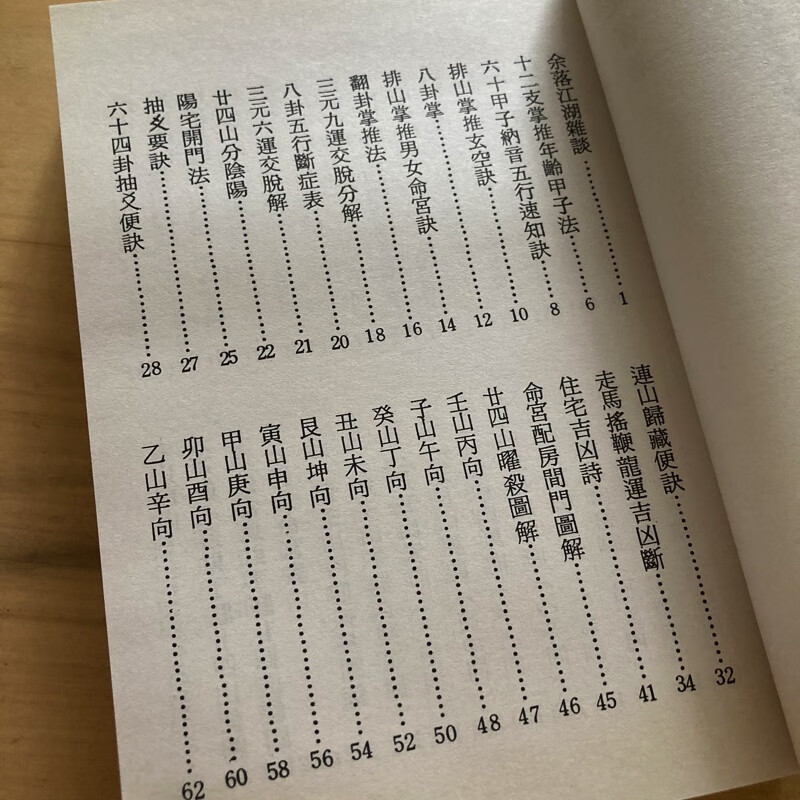 余落江湖雜談……1
十二支掌推年齡甲子法……6
六十甲子納音五行速知訣……8
排山掌推玄空訣……10
八卦掌……12
排山掌推男女命宮訣……14
翻卦掌推法……16
三元九運交脫分解……18
八卦五行斷症表……20
三元六運交脫解……21
廿四山分陰陽……22
陽宅開門法……25
抽爻要訣……27
六十四卦抽爻便訣……28
連山歸藏便訣……32
走馬搖鞭龍運吉凶斷……34
住宅吉凶詩……41
命宮配房間門圖解……45
廿四山曜殺圖解……46
壬山丙向……47
子山午向……48
癸山丁向……50
丑山未向……52
艮山坤向……54
寅山申向……56
甲山庚向……58
卯山酉向……60
乙山辛向……62